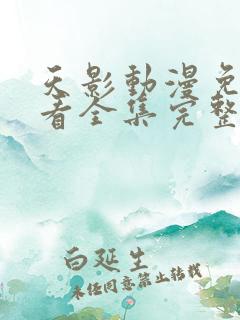 天影動漫免
看全集完整
白延生
未经同意禁止转载